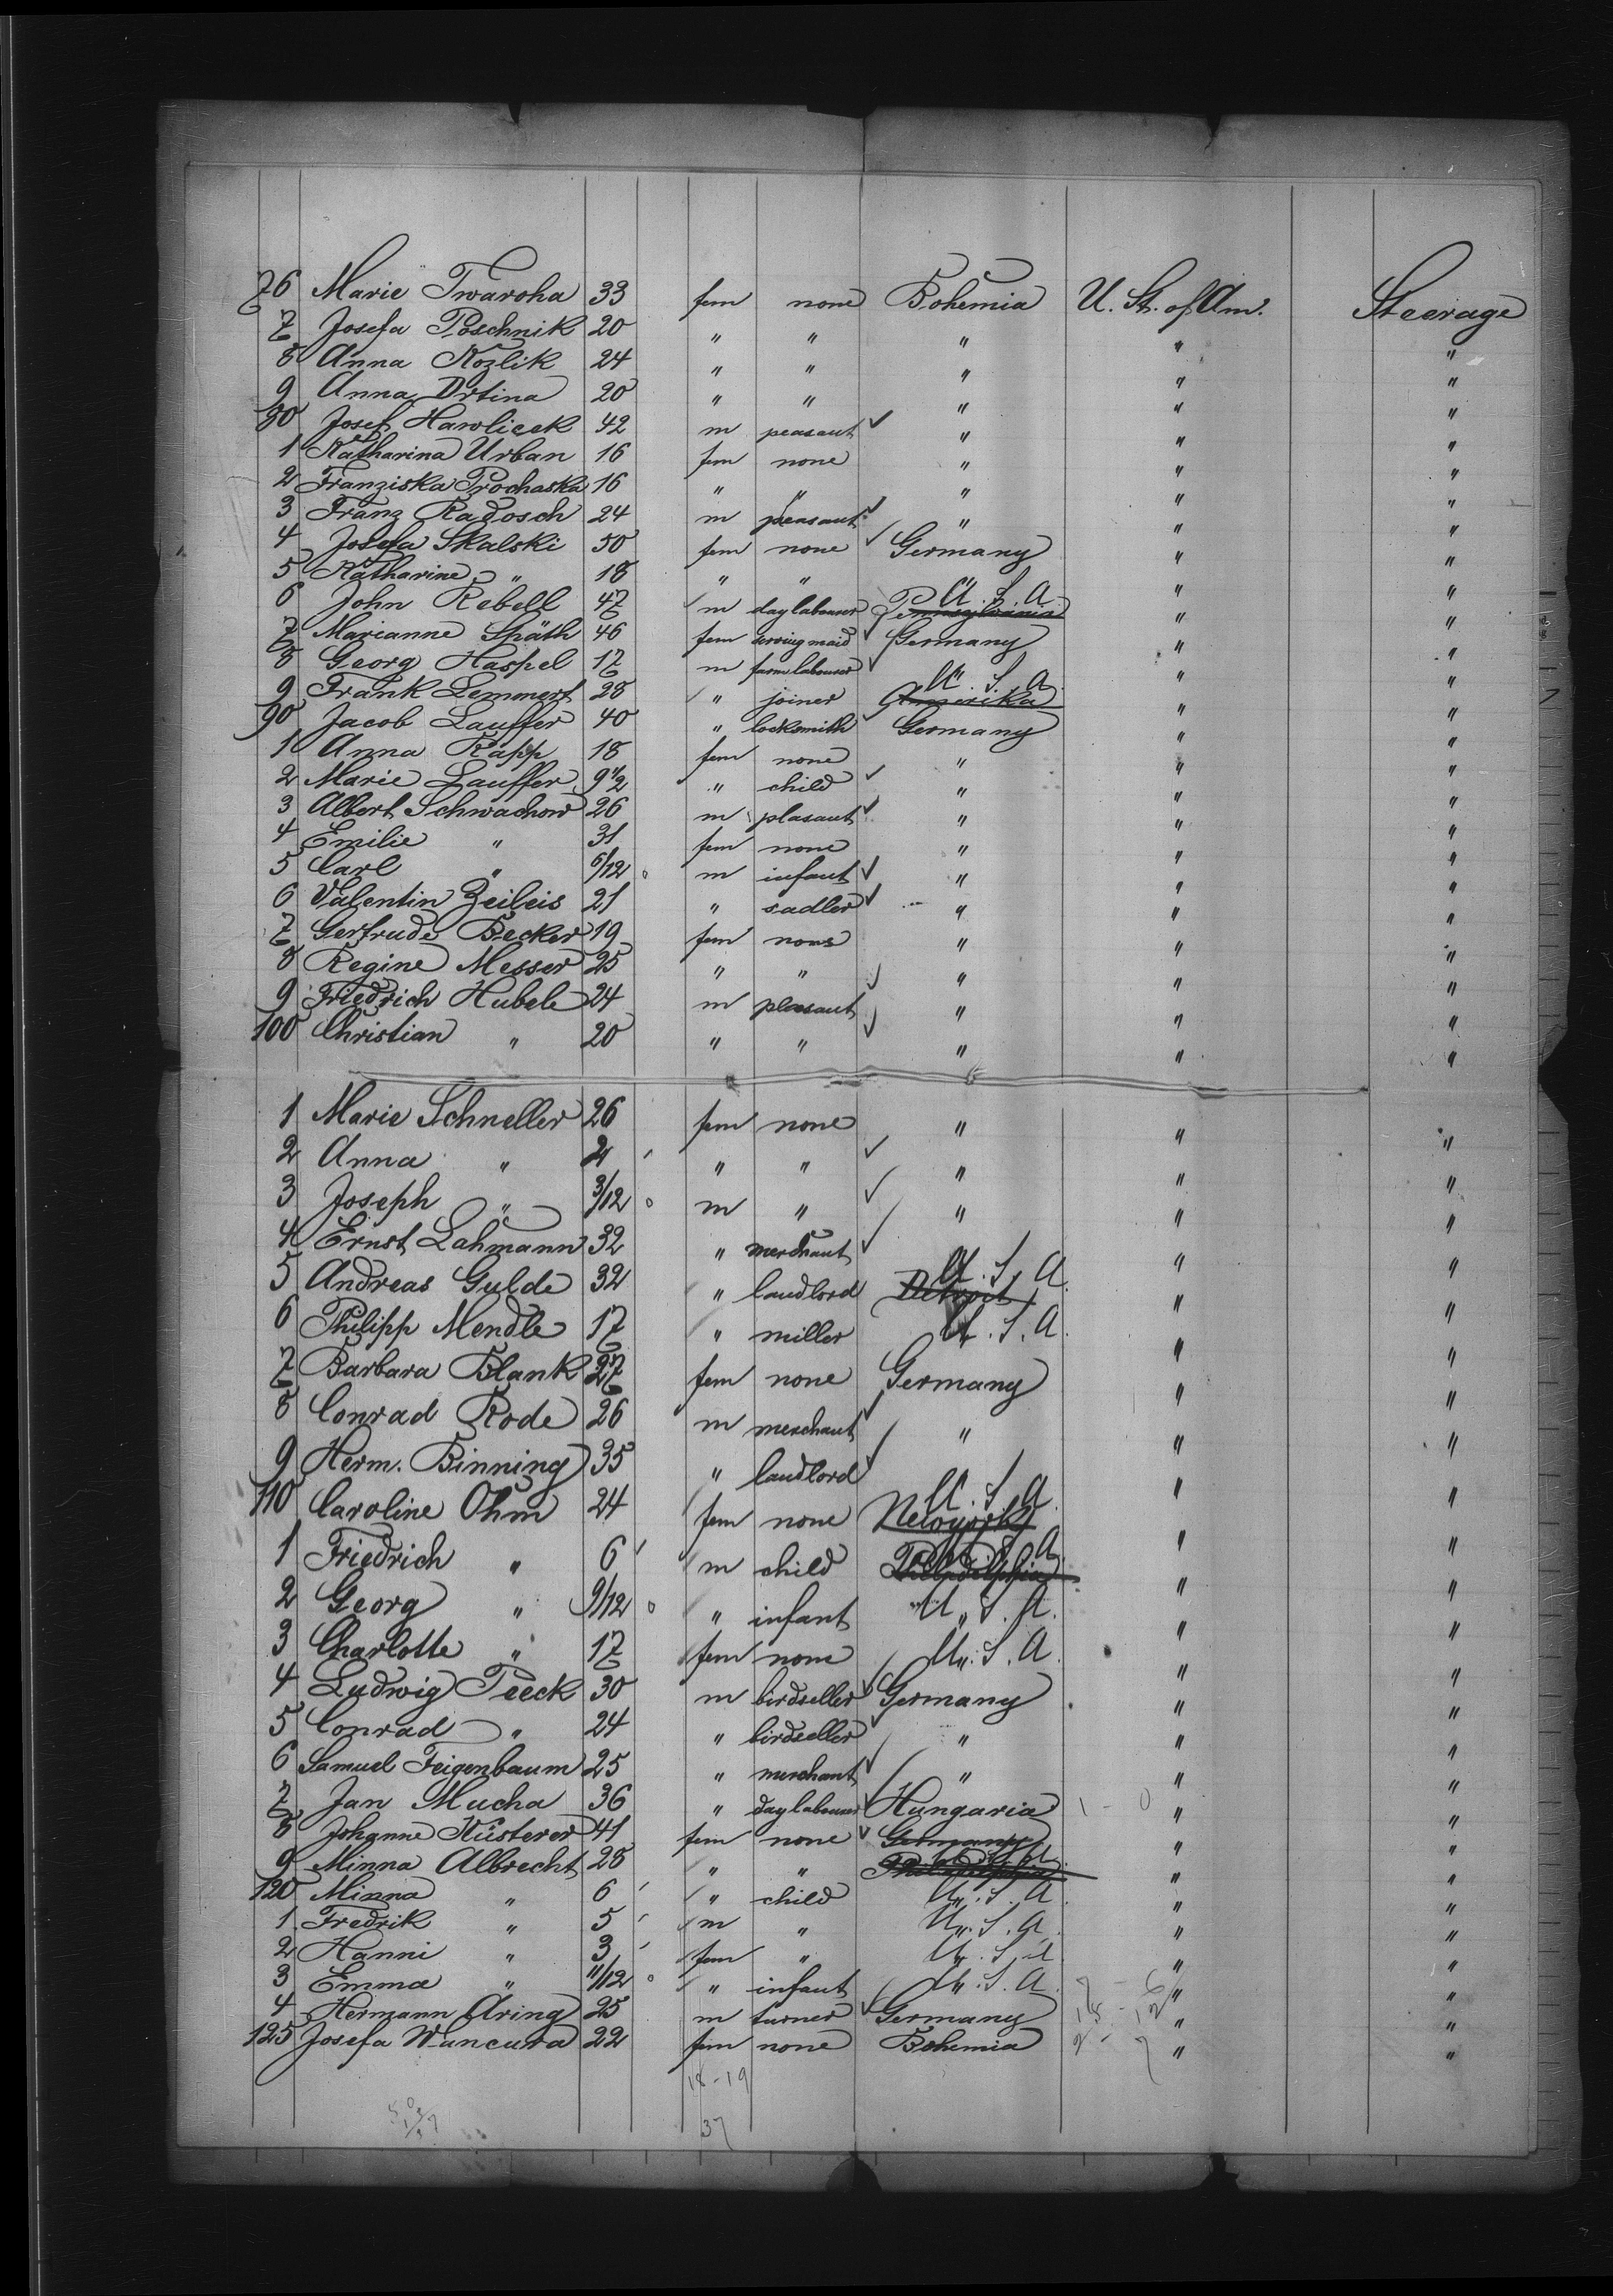 76 Marie Twaroha 33 fem none Bohemia U. St. of Am. Steerage
7 Josefa Poschnik 20 " " " " "
8 Anna Kozlik 24 " " " " "
9 Anna Drtina 20 " " " " "
80 Josef Hawlicek 42 m peasant " " "
1 Katharina Urban 16 fem none " " "
2 Franziska Prochaska 16 " " " " "
3 Franz Radosch 24 m peasant " " "
4 Josefa Skalski 50 fem none Germany " "
5 Katharine " 18 " " " " "
6 John Rebell 47 m daylabourer Pennsylvania U. S. A " "
7 Marianne Späth 46 fem serving maid Germany " "
8 Georg Haspel 17 m farmlabourer " " "
9 Frank Lemmert 28 " joiner Amerika U. S. A " "
90 Jacob Lauffer 40 " locksmith Germany " "
1 Anna Rapp 18 fem none " " "
2 Marie Lauffer 9 1/2 " child " " "
3 Albert Schwachow 26 m plasant " " "
4 Emilie " 31 fem none " " "
5 Carl " 6/12 m infant " " "
6 Valentin Zeileis 21 " sadler " " "
7 Gertrude Becker 19 fem none " " "
8 Regine Messer 25 " " " " "
9 Friedrich Hubele 24 m plasant " " "
100 Christian " 20 " " " " "
1 Marie Schneller 26 fem none " " "
2 Anna " 2 " " " " "
3 Joseph " 3/12 m " " " "
4 Ernst Lahmann 32 " merchant " "
5 Andreas Gulde 32 " landlord Detroit U. S. A. " "
6 Philipp Mendle 17 " miller U. S. A. " "
7 Barbara Blank 27 fem none Germany " "
8 Conrad Rode 26 m merchant " " "
9 Herm. Binning 35 " landlord " "
110 Caroline Ohm 24 fem none Newyork U. S. A. " "
1 Friedrich " 6 m child Philadelphia A. " "
2 Georg " 9/12 " infant U. S. A. " "
3 Charlotte " 17 fem none U. S. A. " "
4 Ludwig Peeck 30 m birdseller Germany " "
5 Conrad " 24 " birdseller " " "
6 Samuel Feigenbaum 25 " merchant " " "
7 Jan Mucha 36 " daylabourer Hungaria 1 - 0 " "
8 Johanne Küsterer 41 fem none Germany " "
9 Minna Albrecht 28 " " Philadelphia " "
120 Minna " 6 " child U. S. A. " "
1 Fredrik " 5 m " U. S. A. " "
2 Hanni " 3 fem " U. S. A " "
3 Emma " 11/12 " infant U. S. A. " "
4 Hermann Aring 25 m turner Germany " "
125 Josefa Wancura 22 fem none Bohemia " "
18-19
37